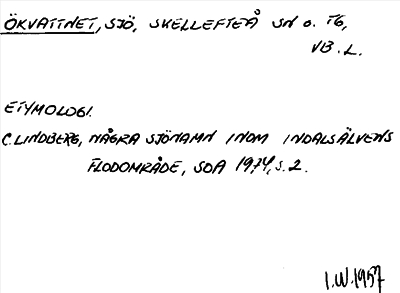 ÖKVATTNET, SJÖ, SKELLEFTEÅ SN O. TG,
VB. L.
ETYMOLOGI.
C. LINDBERG, NÅGRA SJÖNAMN INOM INDALSÄLVENS
FLODOMRÅDE, SOA 1974, S. 2.
I.W. 1957